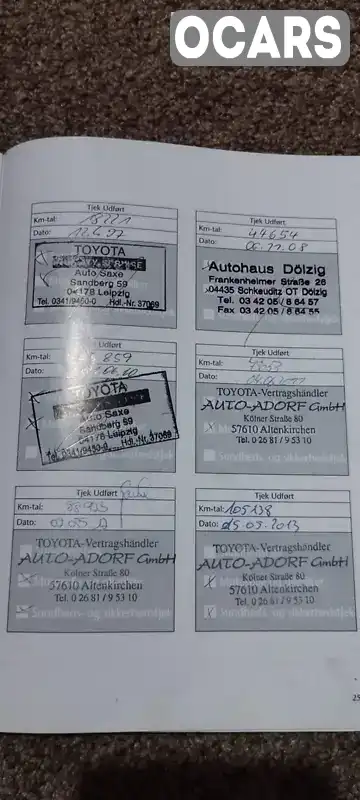 OCARS
Tjek Udført
Km-tal:
Dato:
TOYOTA
Auto Saxe
Sandberg 59
04178 Leipzig
Tel. 0341/9450-0 Hdl.-Nr. 37069
Tjek Udført
Km-tal: 44654
Dato: 06.11.08
Autohaus Dölzig
Frankenheimer Straße 26
04435 Schkeuditz OT Dölzig
Tel. 03 42 05 / 8 64 57
Fax 03 42 05 / 8 64 55
Udført
Km-tal: 859
Dato:
TOYOTA
Auto Saxe
Sandberg 59
04178 Leipzig
Tel. 0341/9450-0 Hdl.-Nr. 37069
Tjek Udført
Km-tal:
Dato:
TOYOTA-Vertragshändler
AUTO-ADORF GmbH
Kölner Straße 80
57610 Altenkirchen
Tel. 0 26 81 / 9 53 10
Sundheds- og sikkerhedstjek
Tjek Udført
Km-tal:
Dato:
TOYOTA-Vertragshändler
AUTO-ADORF GmbH
Kölner Straße 80
57610 Altenkirchen
Tel. 0 26 81 / 9 53 10
Sundheds- og sikkerhedstjek
Tjek Udført
Km-tal: 105138
Dato: 05.09.2013
TOYOTA-Vertragshändler
AUTO-ADORF GmbH
Kölner Straße 80
57610 Altenkirchen
Tel. 0 26 81 / 9 53 10
Sundheds- og sikkerhedstjek
25